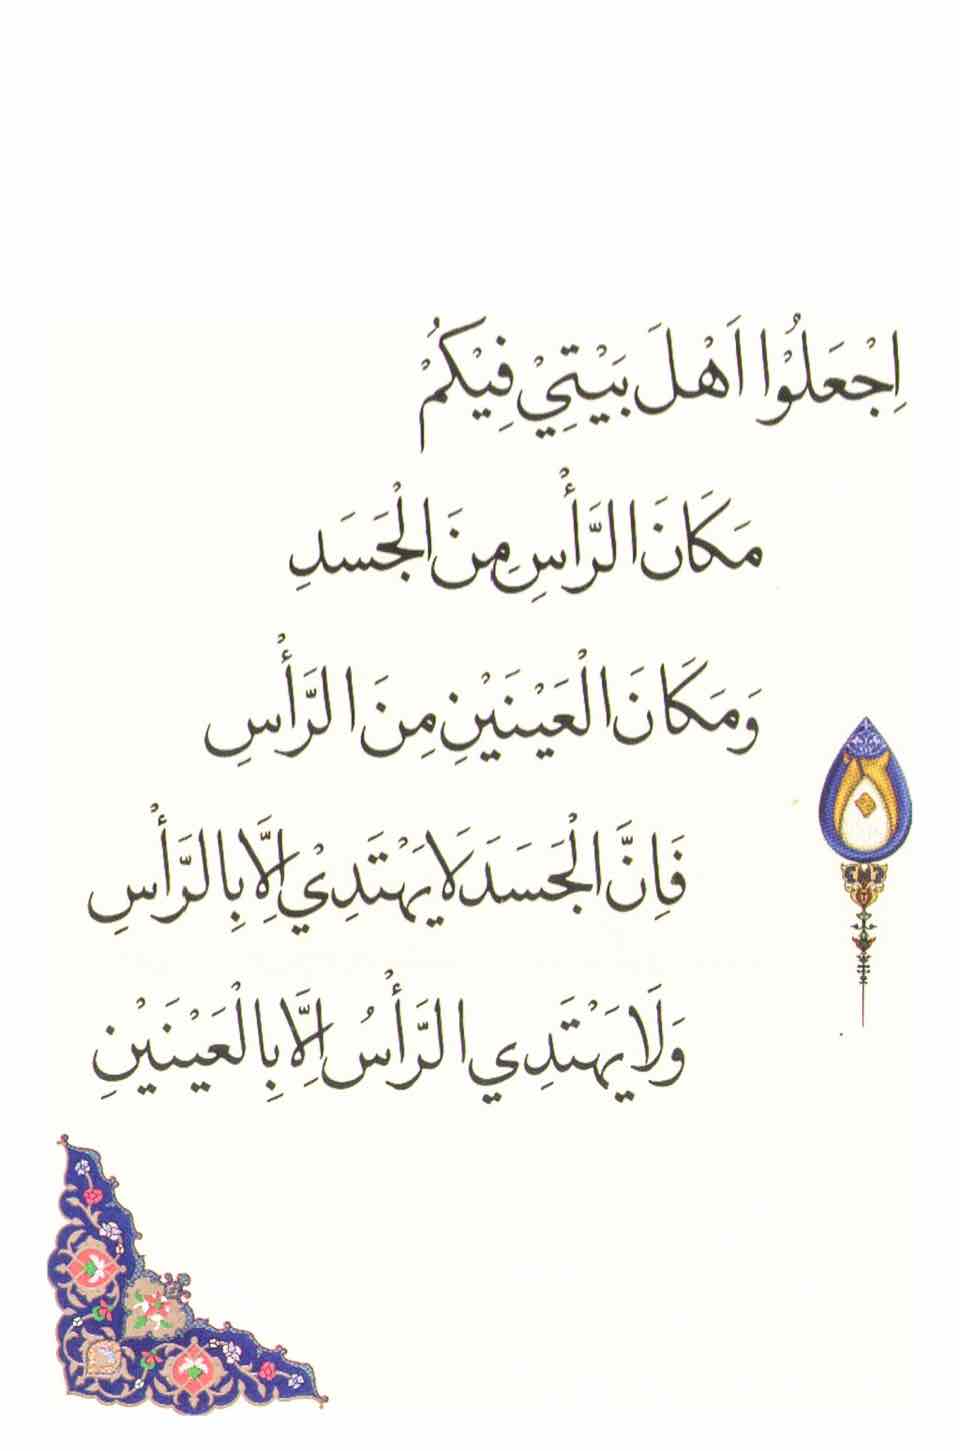 اِجْعَلُوْا اَهْلَ بَيْتِيْ فِيْكُمْ
مَكَانَ الرَّأْسِ مِنَ الْجَسَدِ
وَمَكَانَ الْعَيْنَيْنِ مِنَ الرَّأْسِ
فَاِنَّ الْجَسَدَ لَا يَهْتَدِيْ اِلَّا بِالرَّأْسِ
وَلَا يَهْتَدِي الرَّأْسُ اِلَّا بِالْعَيْنَيْنِ